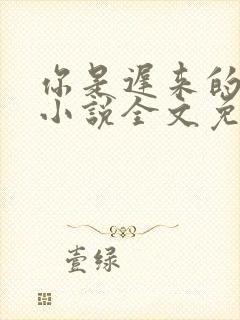 你是遲来的
小說全文免
壹绿